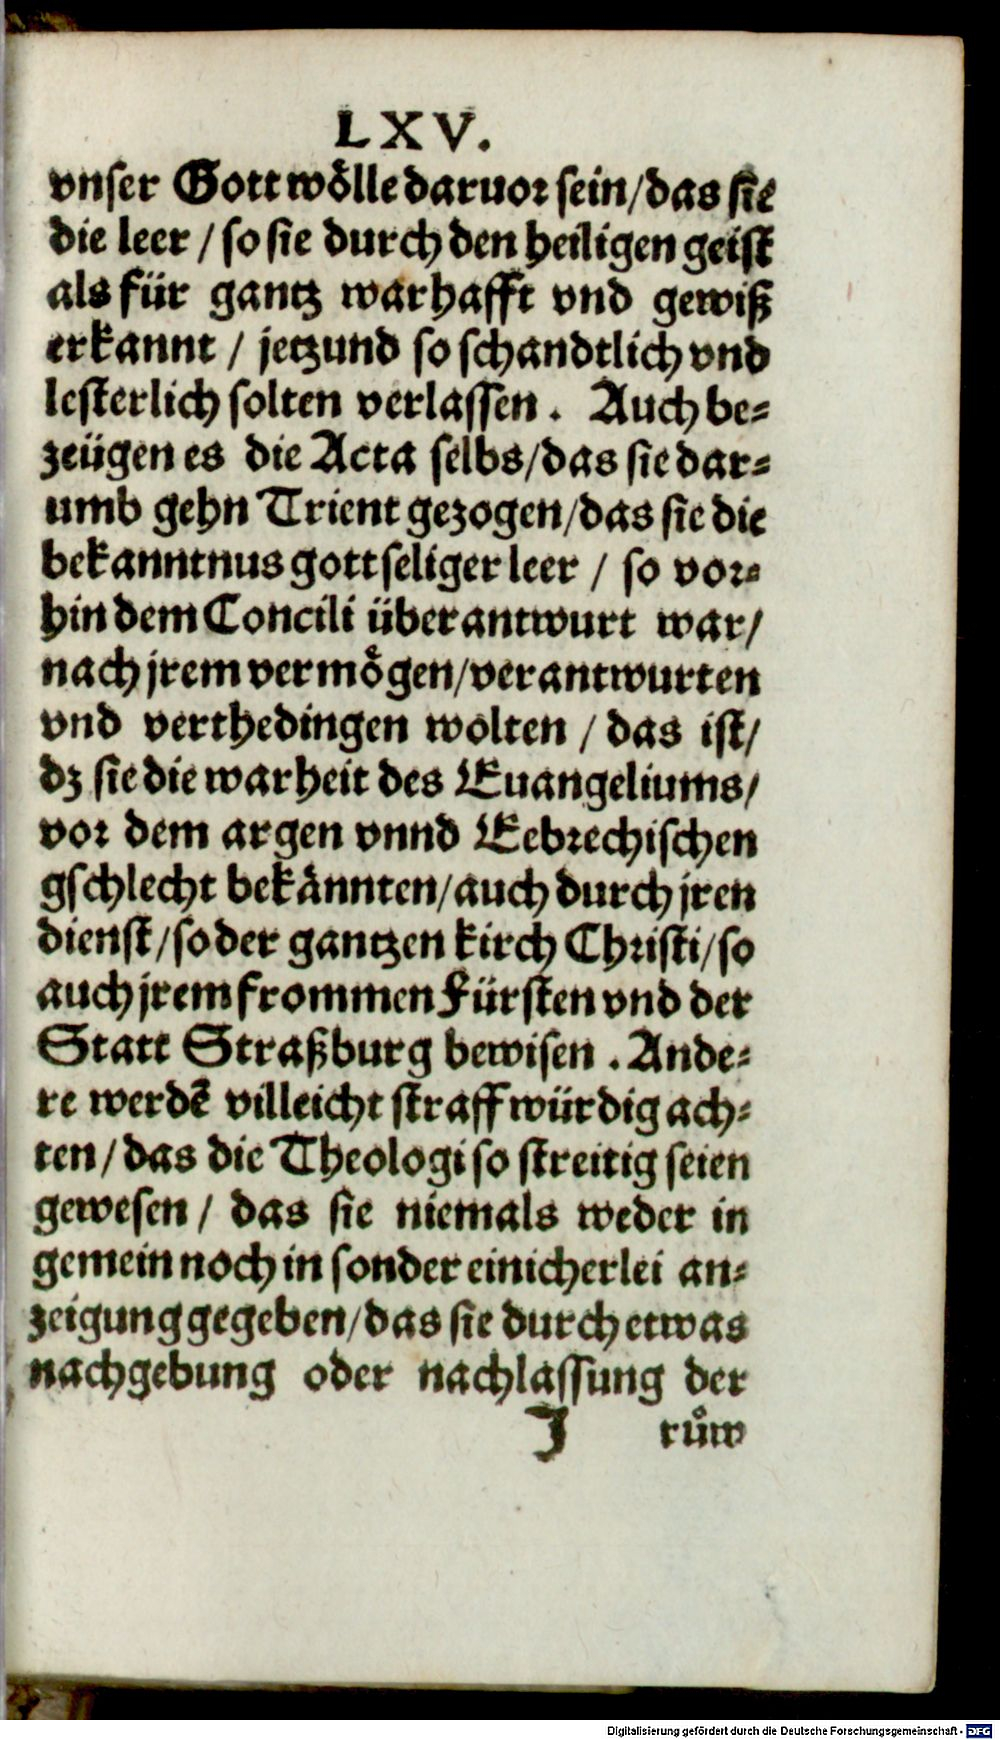 LXV.
vnser Gott wölle daruor sein/das sie
die leer / so sie durch den heiligen geist
als für gantz warhafft vnd gewiß
erkannt / jetzund so schandtlich vnd
lesterlich solten verlassen . Auch be-
zeügen es die Acta selbs/das sie dar-
umb gehn Trient gezogen/das sie die
bekanntnus gottseliger leer / so vor-
hin dem Concili überantwurt war/
nach jrem vermögen/verantwurten
vnd verthedingen wolten / das ist/
dz sie die warheit des Euangeliums/
vor dem argen vnnd Eebrechischen
gschlecht bekännten/auch durch jren
dienst/so der gantzen kirch Christi/so
auch jrem frommen Fürsten vnd der
Statt Straßburg bewisen . Ande-
re werdē villeicht straffwürdig ach-
ten/das die Theologi so streitig seien
gewesen / das sie niemals weder in
gemein noch in sonder einicherlei an-
zeigung gegeben/das sie durch etwas
nachgebung oder nachlassung der
J růw
Digitalisierung gefördert durch die Deutsche Forschungsgemeinschaft - DFG